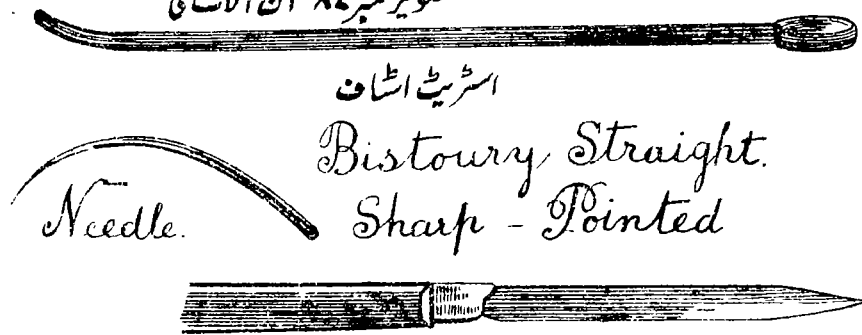 تصویر نمبر ۸۷
اسٹریٹ اسٹاف
Bistoury Straight.
Needle. Sharp - Pointed